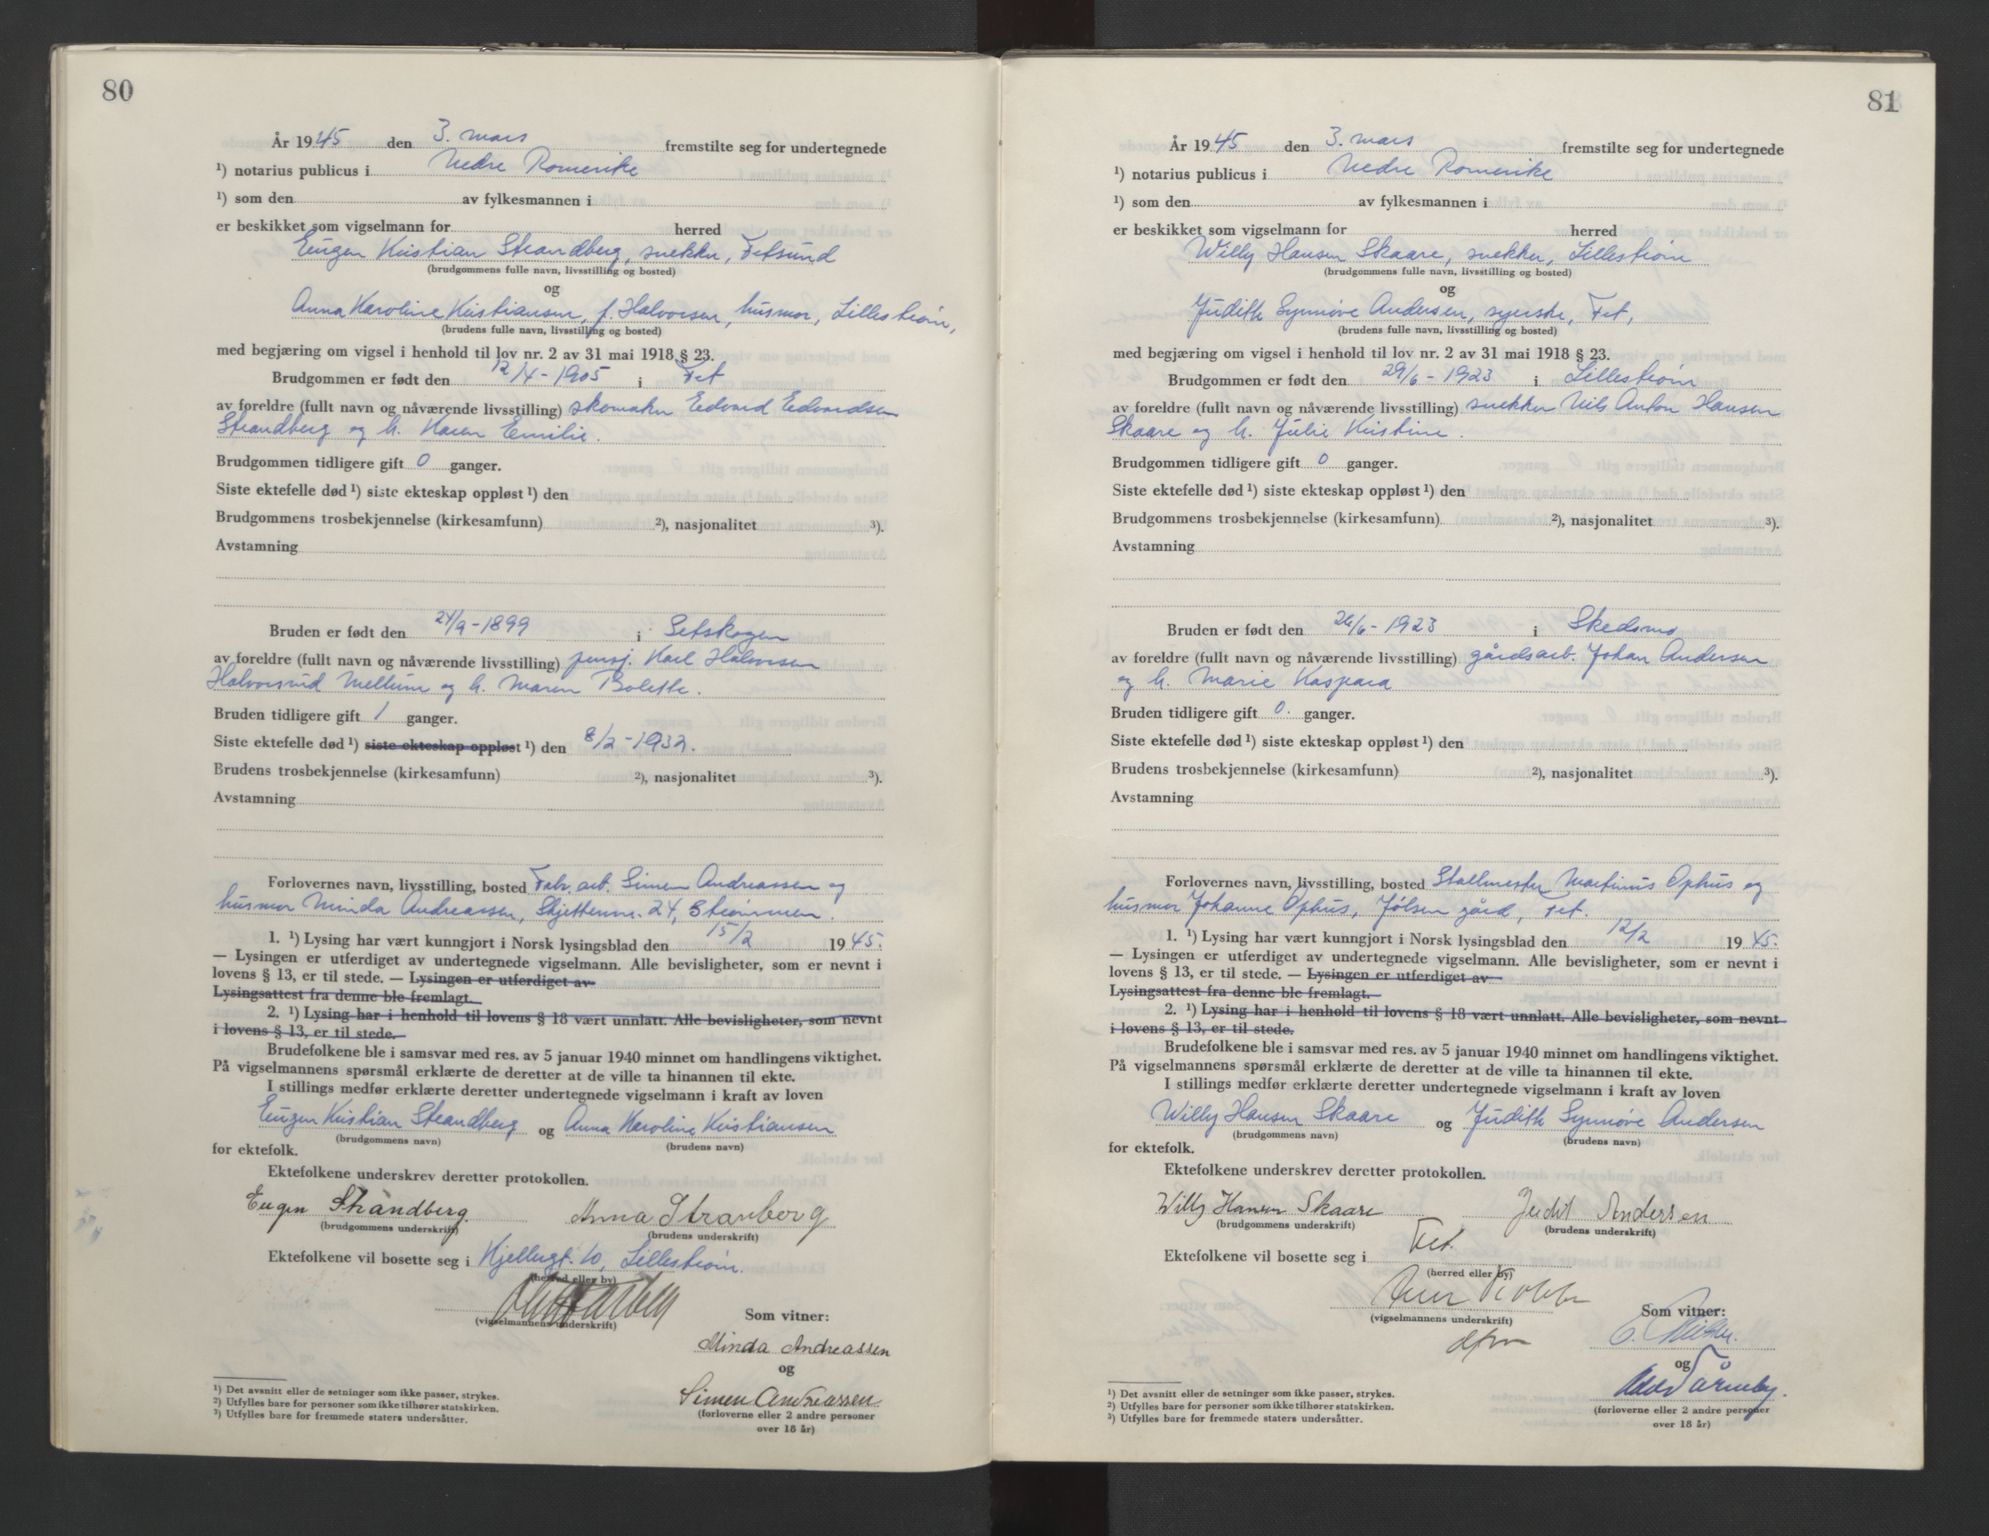 80
År 1945 den 3. mars fremstilte seg for undertegnede
¹) notarius publicus i Nedre Romerike
¹) som den av fylkesmannen i
er beskikket som vigselmann for herred
Eugen Kristian Strandberg, snekker, Fetsund
(brudgommens fulle navn, livsstilling og bosted)
og
Anna Karoline Kristiansen, f. Halvorsen, husmor, Lillestrøm,
(brudens fulle navn, livsstilling og bosted)
med begjæring om vigsel i henhold til lov nr. 2 av 31 mai 1918 § 23.
Brudgommen er født den 12/4-1905 i Fet
av foreldre (fullt navn og nåværende livsstilling) skomaker Edvard Edvardsen
Strandberg og h. Karen Emilie.
Brudgommen tidligere gift 0 ganger.
Siste ektefelle død ¹) siste ekteskap oppløst ¹) den
Brudgommens trosbekjennelse (kirkesamfunn) ²), nasjonalitet ³).
Avstamning
Bruden er født den 24/9-1899 i Setskogen
av foreldre (fullt navn og nåværende livsstilling) pensj. Karl Halvorsen
Halvorsrud Mellum og h. Maren Bolette.
Bruden tidligere gift 1 ganger.
Siste ektefelle død ¹) siste ekteskap oppløst ¹) den 8/2-1932.
Brudens trosbekjennelse (kirkesamfunn) ²), nasjonalitet ³).
Avstamning
Forlovernes navn, livsstilling, bosted Fabr.arb. Simen Andreassen og
husmor Minda Andreassen, Skjettenvn. 24, Strømmen.
1. ¹) Lysing har vært kunngjort i Norsk lysingsblad den 15/2 1945.
— Lysingen er utferdiget av undertegnede vigselmann. Alle bevisligheter, som er nevnt i
lovens § 13, er til stede. — Lysingen er utferdiget av
Lysingsattest fra denne ble fremlagt.
2. ¹) Lysing har i henhold til lovens § 18 vært unnlatt. Alle bevisligheter, som nevnt
i lovens § 13, er til stede.
Brudefolkene ble i samsvar med res. av 5 januar 1940 minnet om handlingens viktighet.
På vigselmannens spørsmål erklærte de deretter at de ville ta hinannen til ekte.
I stillings medfør erklærte deretter undertegnede vigselmann i kraft av loven
Eugen Kristian Strandberg og Anna Karoline Kristiansen
(brudgommens navn) (brudens navn)
for ektefolk.
Ektefolkene underskrev deretter protokollen.
Eugen Strandberg Anna Stranberg
(brudgommens underskrift) (brudens underskrift)
Ektefolkene vil bosette seg i Kjellergt. 10, Lillestrøm.
(herred eller by)
(vigselmannens underskrift)
Som vitner:
Minda Andreassen
og
Simen Andreassen
(forloverne eller 2 andre personer
over 18 år)
¹) Det avsnitt eller de setninger som ikke passer, strykes.
²) Utfylles bare for personer som ikke tilhører statskirken.
³) Utfylles bare for fremmede staters undersåtter.
81
År 1945 den 3. mars fremstilte seg for undertegnede
¹) notarius publicus i Nedre Romerike
¹) som den av fylkesmannen i
er beskikket som vigselmann for herred
Willy Hansen Skaare, snekker, Lillestrøm
(brudgommens fulle navn, livsstilling og bosted)
og
Judith Synnøve Andersen, syerske, Fet,
(brudens fulle navn, livsstilling og bosted)
med begjæring om vigsel i henhold til lov nr. 2 av 31 mai 1918 § 23.
Brudgommen er født den 29/6-1923 i Lillestrøm
av foreldre (fullt navn og nåværende livsstilling) snekker Nils Anton Hansen
Skaare og h. Julie Kristine.
Brudgommen tidligere gift 0 ganger.
Siste ektefelle død ¹) siste ekteskap oppløst ¹) den
Brudgommens trosbekjennelse (kirkesamfunn) ²), nasjonalitet ³).
Avstamning
Bruden er født den 26/6-1923 i Skedsmo
av foreldre (fullt navn og nåværende livsstilling) gårdsarb. Johan Andersen
og h. Marie Kaspara
Bruden tidligere gift 0. ganger.
Siste ektefelle død ¹) siste ekteskap oppløst ¹) den
Brudens trosbekjennelse (kirkesamfunn) ²), nasjonalitet ³).
Avstamning
Forlovernes navn, livsstilling, bosted Stallmester Martinus Ophus og
husmor Johanne Ophus, Jølsen gård, Fet.
1. ¹) Lysing har vært kunngjort i Norsk lysingsblad den 12/2 1945.
— Lysingen er utferdiget av undertegnede vigselmann. Alle bevisligheter, som er nevnt i
lovens § 13, er til stede. — Lysingen er utferdiget av
Lysingsattest fra denne ble fremlagt.
2. ¹) Lysing har i henhold til lovens § 18 vært unnlatt. Alle bevisligheter, som nevnt
i lovens § 13, er til stede.
Brudefolkene ble i samsvar med res. av 5 januar 1940 minnet om handlingens viktighet.
På vigselmannens spørsmål erklærte de deretter at de ville ta hinannen til ekte.
I stillings medfør erklærte deretter undertegnede vigselmann i kraft av loven
Willy Hansen Skaare og Judith Synnøve Andersen
(brudgommens navn) (brudens navn)
for ektefolk.
Ektefolkene underskrev deretter protokollen.
Willy Hansen Skaare Judit Andersen
(brudgommens underskrift) (brudens underskrift)
Ektefolkene vil bosette seg i Fet.
(herred eller by)
(vigselmannens underskrift)
Som vitner:
og
(forloverne eller 2 andre personer
over 18 år)
¹) Det avsnitt eller de setninger som ikke passer, strykes.
²) Utfylles bare for personer som ikke tilhører statskirken.
³) Utfylles bare for fremmede staters undersåtter.